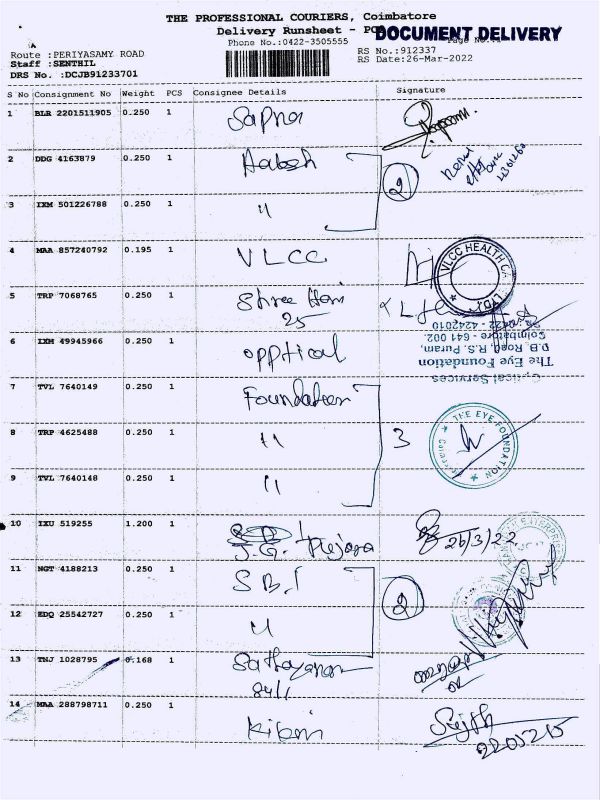 THE PROFESSIONAL COURIERS, Coimbatore
Delivery Runsheet - POD
DOCUMENT DELIVERY
Phone No.:0422-3505555
Route :PERIYASAMY ROAD
Staff :SENTHIL
DRS No. :DCJB91233701
RS No.:912337
RS Date:26-Mar-2022
S No Consignment No Weight PCS Consignee Details Signature
1 BLR 2201511905 0.250 1 Sapna
2 DDG 4163879 0.250 1 2
3 IXM 501226788 0.250 1 "
4 MAA 857240792 0.195 1 VLCC
VLCC HEALTH CA
5 TRP 7068765 0.250 1 Shree Hari
25
0422 - 4242010
Coimbatore - 641 002.
D.B. Road, R.S. Puram,
The Eye Foundation
Optical Services
6 IXM 49945966 0.250 1 opptical
7 TVL 7640149 0.250 1 Foundation
8 TRP 4625488 0.250 1 " 3
THE EYE FOUNDATION
9 TVL 7640148 0.250 1 "
10 IXU 519255 1.200 1 J.G. 26/3/22
11 NGT 4188213 0.250 1 S B.I 2
12 EDQ 25542727 0.250 1 "
13 TNJ 1028795 0.168 1
84/1
14 MAA 288798711 0.250 1